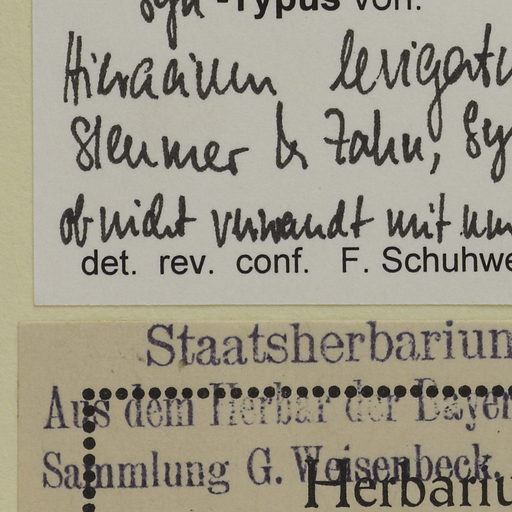 syn -Typus von:
Hieracium levigatu
Sleumer & Zahn, Sy
ob nicht verwandt mit um
det. rev. conf. F. Schuhwe
Staatsherbarium
Aus dem Herbar der Bayer
Sammlung G. Weisenbeck.
Herbariu